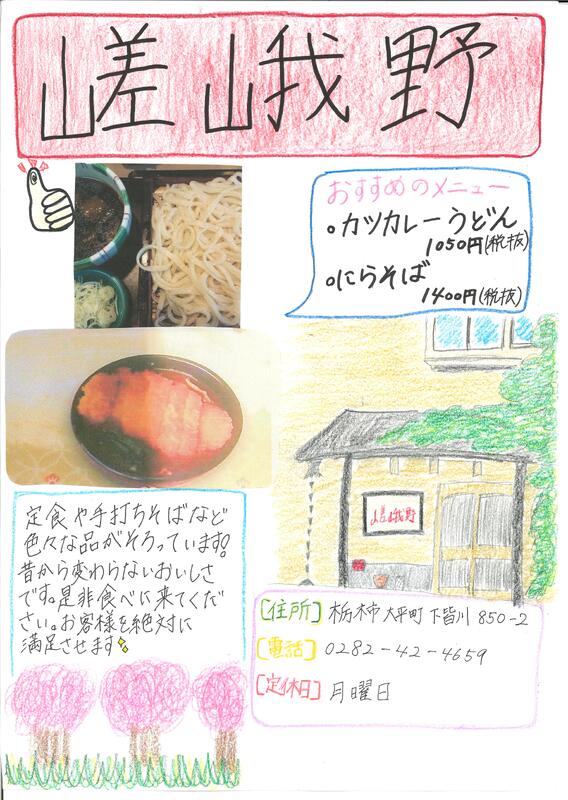 嵯峨野
おすすめのメニュー
○カツカレーうどん
1050円(税抜)
○にらそば
1400円(税抜)
嵯峨野
定食や手打ちそばなど
色々な品がそろっています!
昔から変わらないおいしさ
です。是非食べに来てくだ
さい。お客様を絶対に
満足させます
[住所] 栃木市 大平町 下皆川 850-2
[電話] 0282-42-4659
[定休日] 月曜日